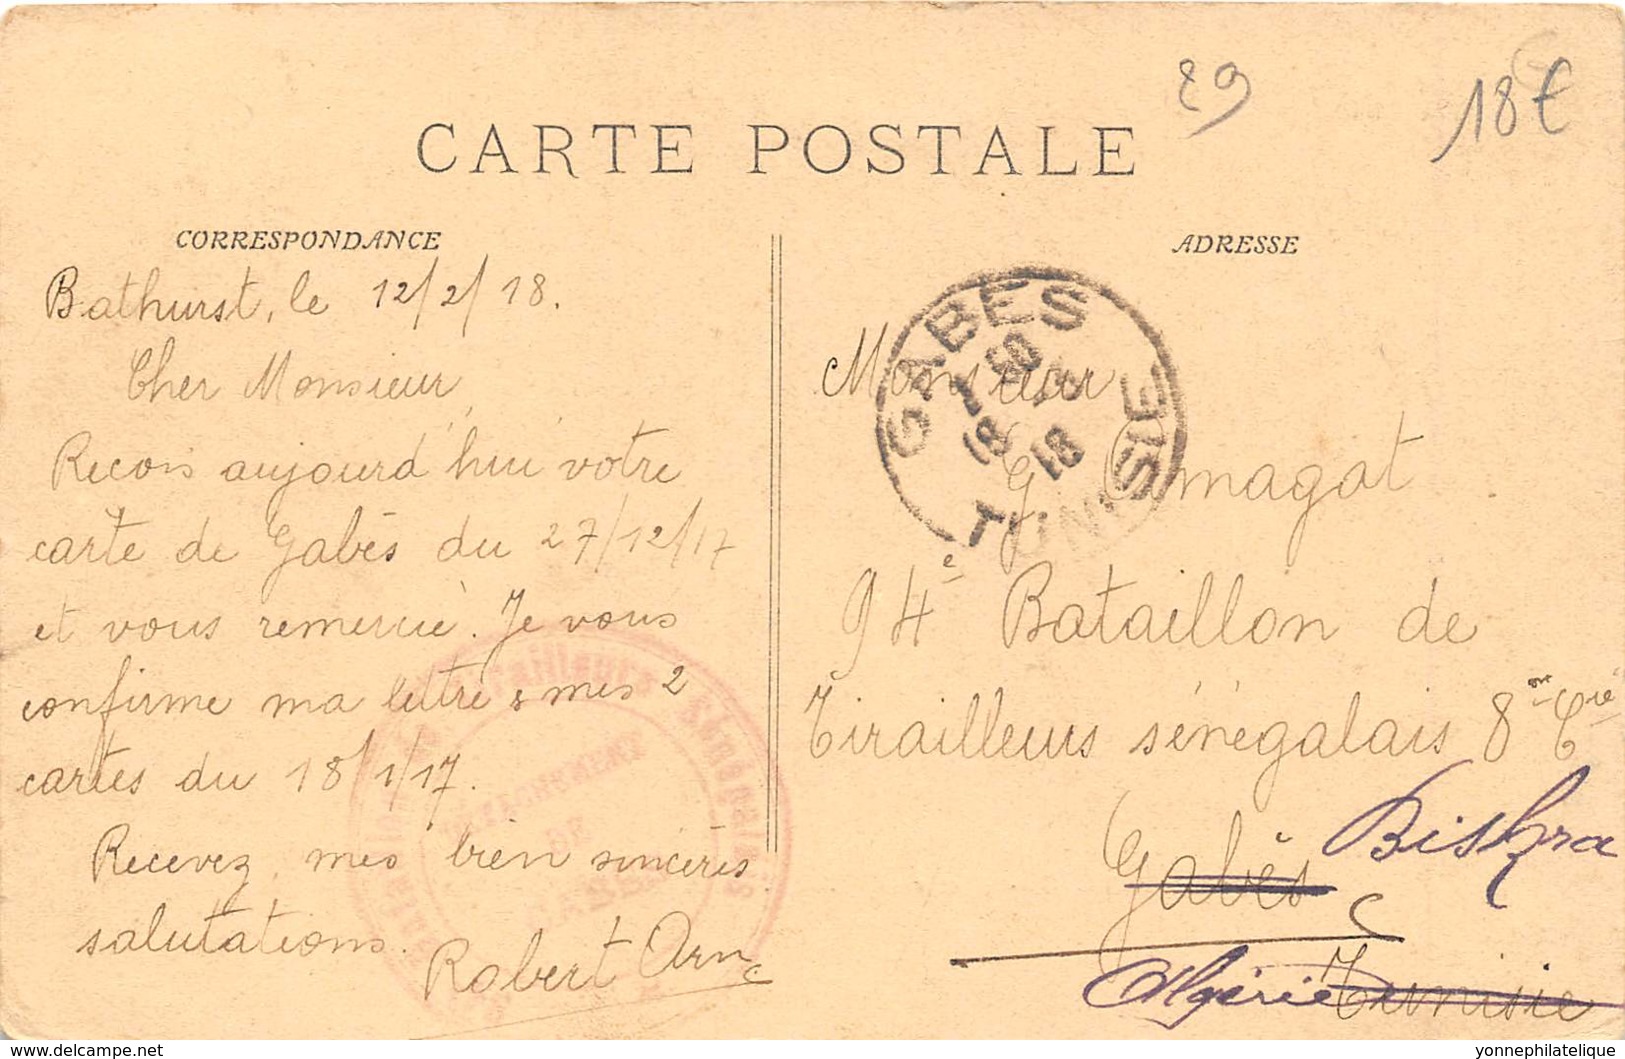 29
18€
CARTE POSTALE
CORRESPONDANCE
Bathurst, le 12/2/18.
Cher Monsieur,
Recois aujourd'hui votre
carte de Gabès du 27/12/17
et vous remercie. Je vous
confirme ma lettre & mes 2
cartes du 18/1/17.
Recevez, mes bien sincères
salutations.
Robert Arn
Tirailleurs Sénégalais
DÉTACHEMENT
DE
GABÈS
ADRESSE
GABES
18
18
TUNISIE
Monsieur
G. Amagat
94e Bataillon de
Tirailleurs sénégalais 8me Cie
Gabès Biskra
Algérie Tunisie
delcampe.net
yonnephilatelique